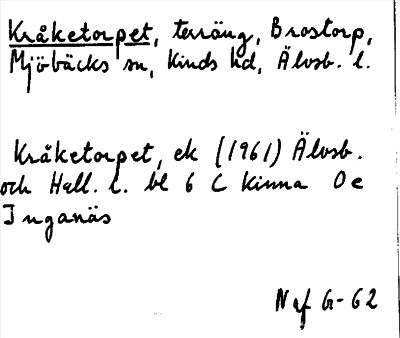 Kråketorpet, terräng, Brostorp,
Mjöbäcks sn, Kinds hd, Älvsb. l.
Kråketorpet, ek (1961) Älvsb.
och Hall. l. bl 6 C Kinna 0 e
Inganäs
Naf G-62